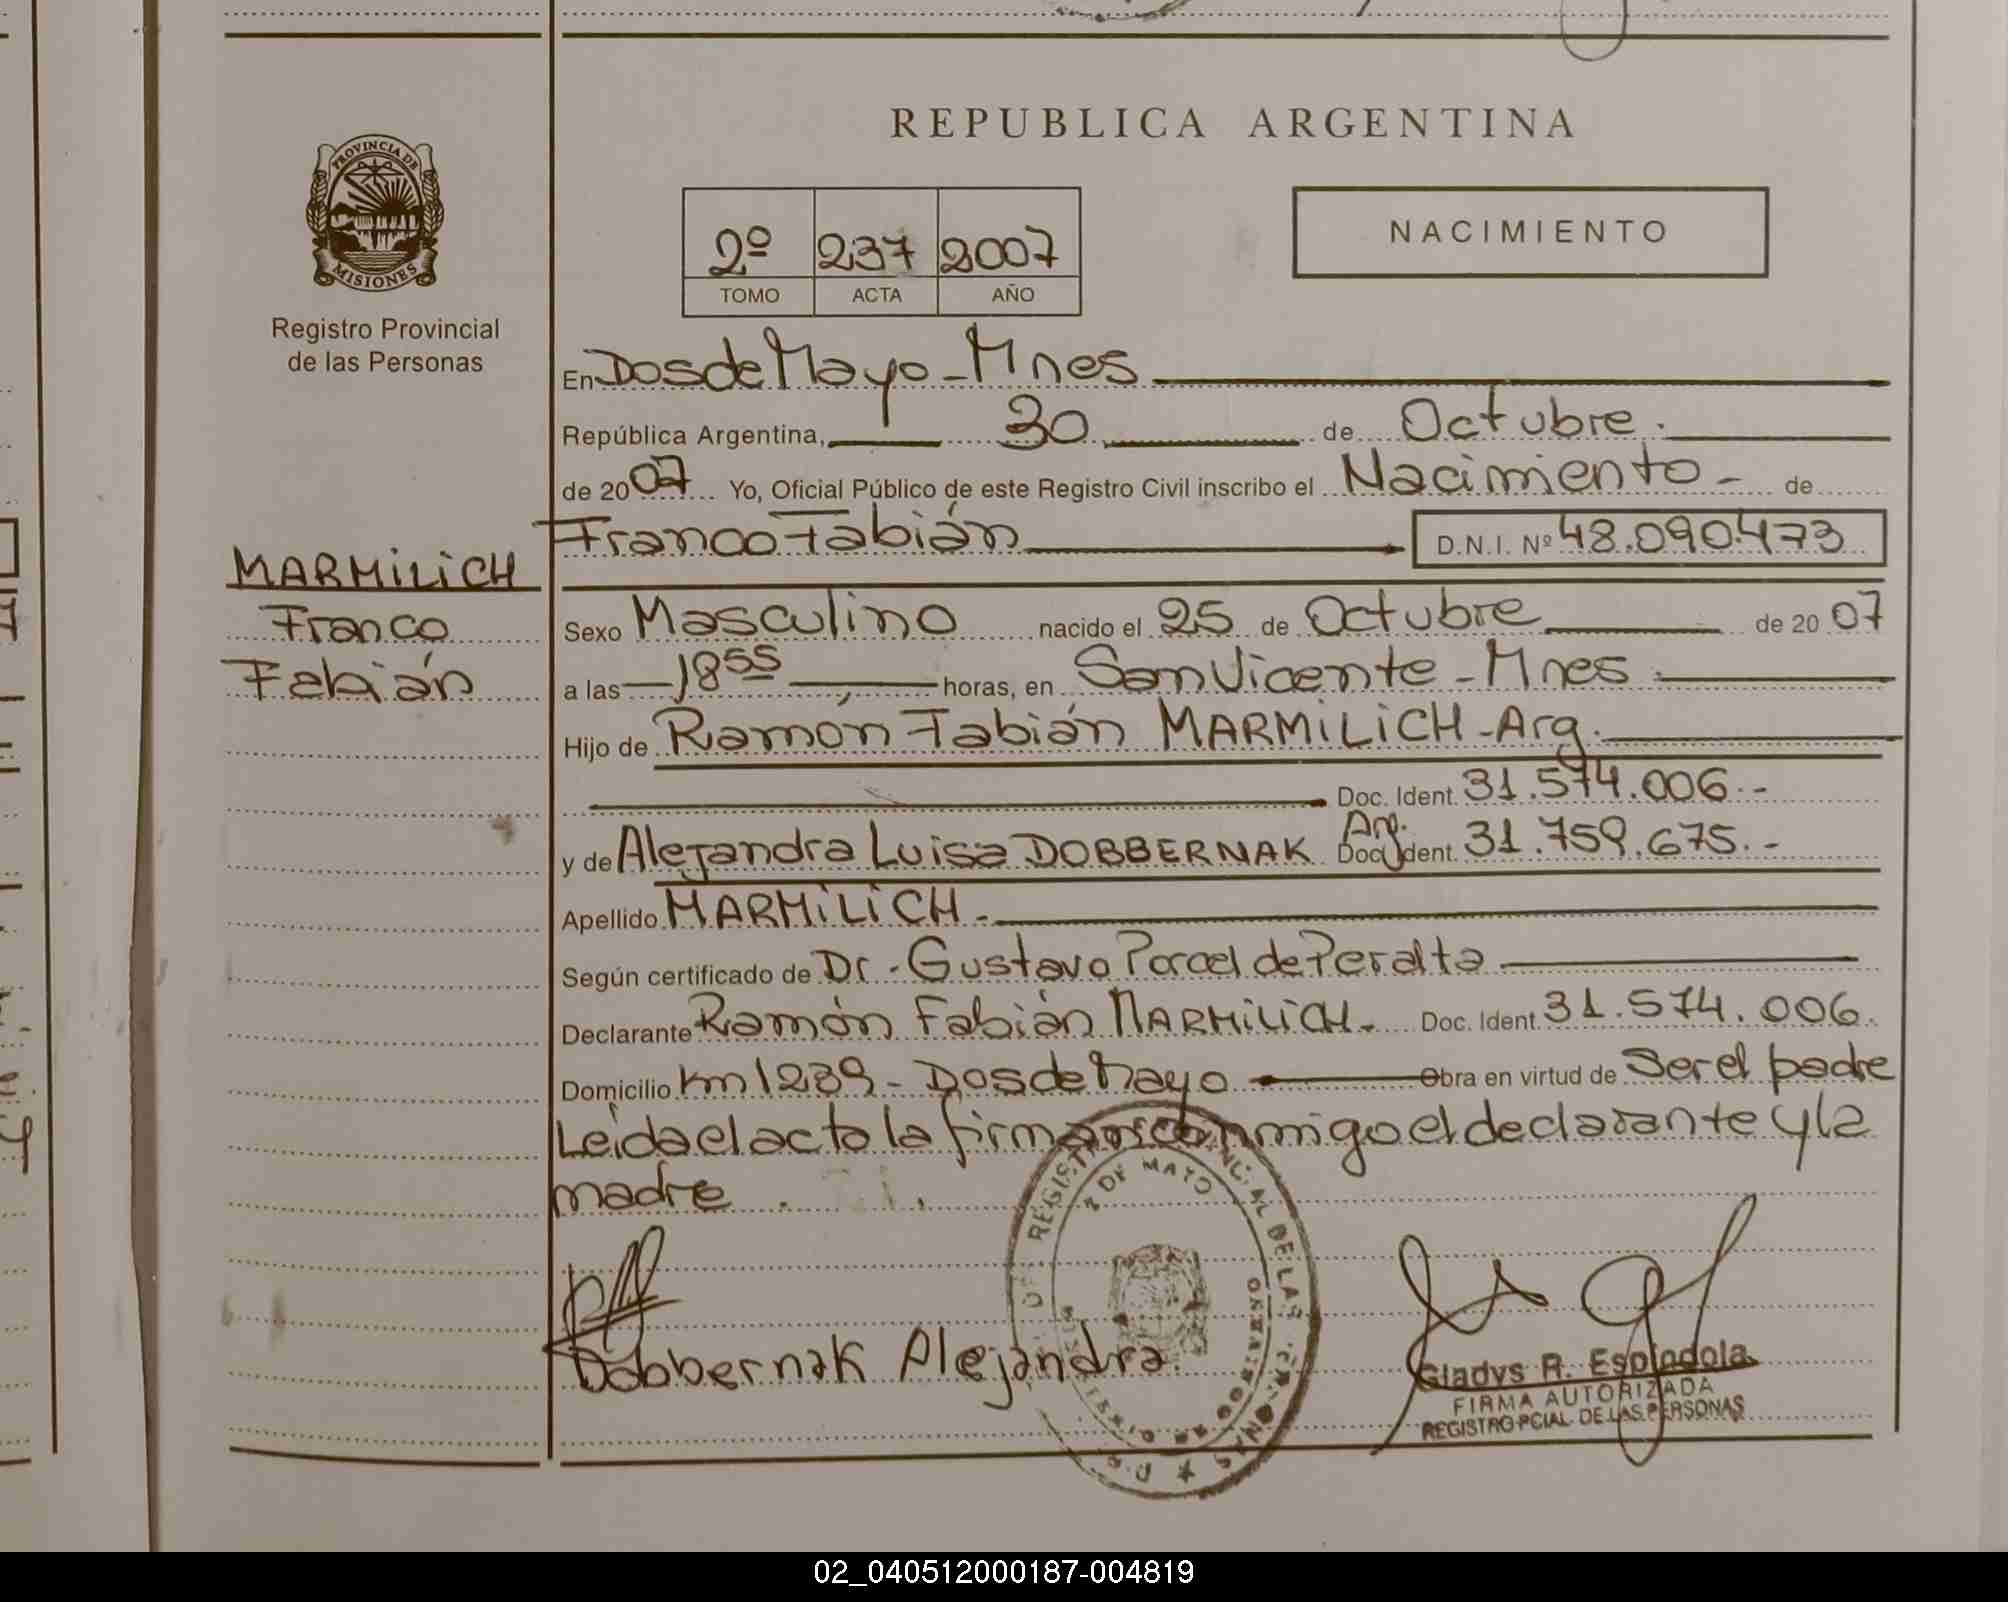 REPUBLICA ARGENTINA
PROVINCIA DE
MISIONES
Registro Provincial
de las Personas
2º 237 2007
TOMO ACTA AÑO
NACIMIENTO
En Dos de Mayo - Mnes
República Argentina, 30 de Octubre.
de 2007 Yo, Oficial Público de este Registro Civil inscribo el Nacimiento - de
Franco Fabián D.N.I. Nº 48.090.473
MARMiLiCH
Franco
Fabián
Sexo Masculino nacido el 25 de Octubre de 2007
a las 18 55 horas, en San Vicente - Mnes
Hijo de Ramón Fabián MARMiLiCH - Arg.
Doc. Ident. 31.574.006.-
y de Alejandra Luisa DOBBERNAK Arg. Doc. Ident. 31.759.675.-
Apellido MARMiLiCH.-
Según certificado de Dr. Gustavo Porcel de Peralta
Declarante Ramón Fabián MARMiLiCH. Doc. Ident. 31.574.006.
Domicilio Km 1239 - Dos de Mayo Obra en virtud de Ser el padre
Leida el acto la firman conmigo el declarante y la
madre.
2 DE MAYO
Dobbernak Alejandra
Gladys R. Espindola
FIRMA AUTORIZADA
REGISTRO PCIAL. DE LAS PERSONAS
02_040512000187-004819